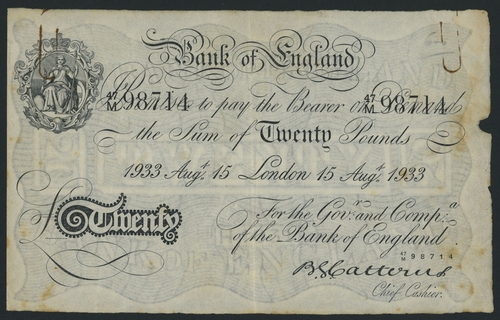 Bank of England
47/M 98714 47/M 98714
to pay the Bearer on Demand
the Sum of Twenty Pounds
1933 Augt. 15 London 15 Augt. 1933
For the Govr. and Compa.
£ Twenty of the Bank of England.
47/M 98714
B G Catterns
Chief Cashier.